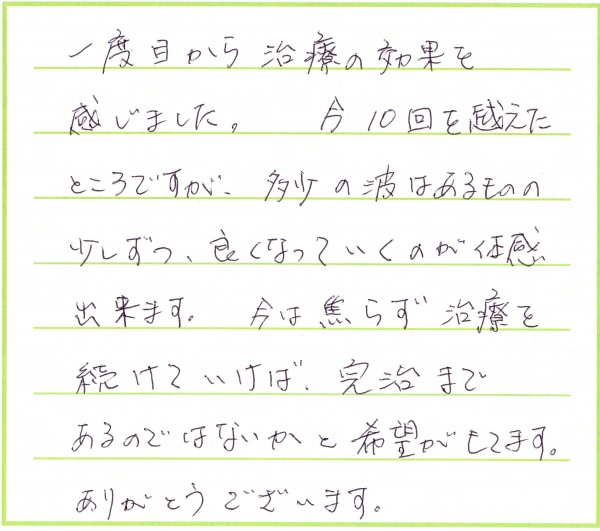 一度目から治療の効果を
感じました。 今10回を越えた
ところですが、多少の波はあるものの
少しずつ、良くなっていくのが体感
出来ます。 今は焦らず治療を
続けていけば、完治まで
あるのではないかと希望がもてます。
ありがとうございます。